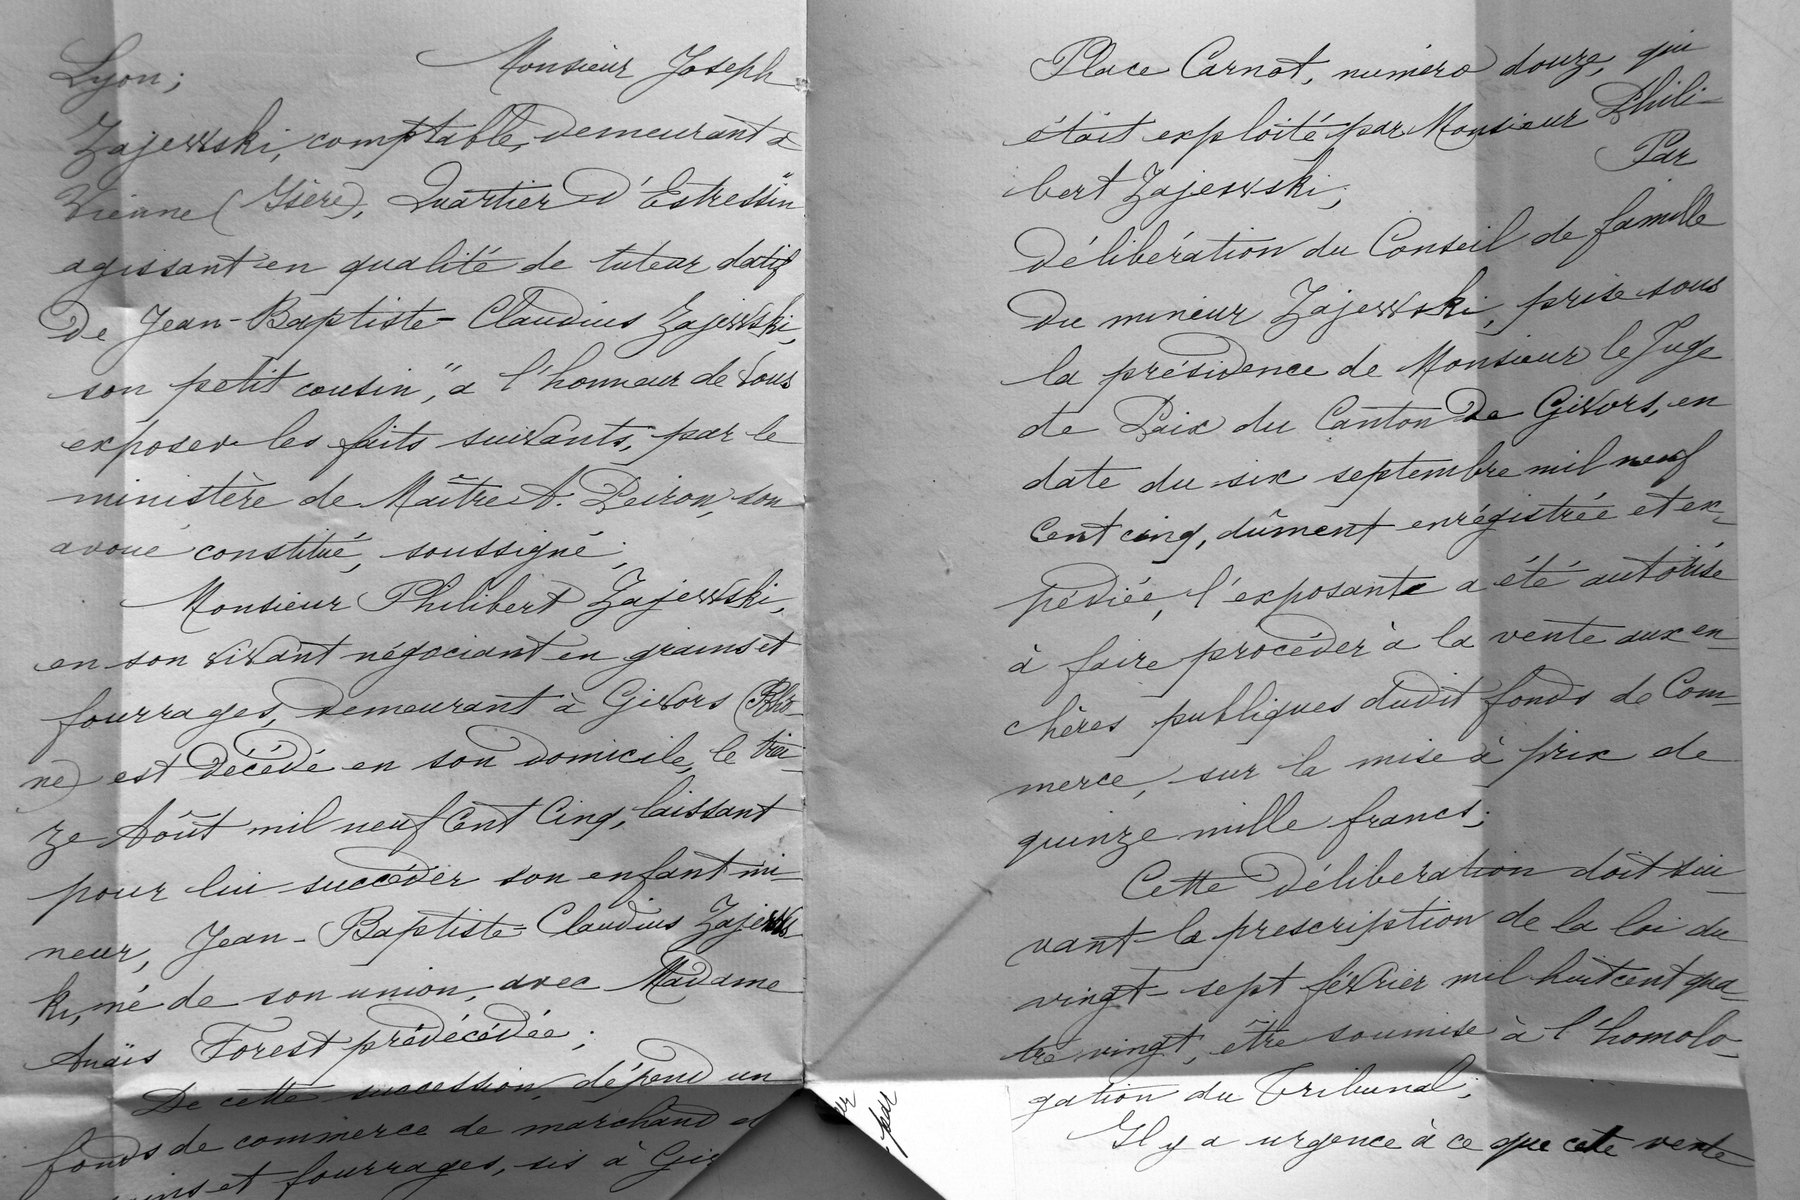 Lyon;
Monsieur Joseph
Zajewski, comptable, demeurant à
Vienne (Isère), Quartier d'Estressin
agissant en qualité de tuteur datif
de Jean-Baptiste-Claudius Zajewski,
son petit cousin," a l'honneur de vous
exposer les faits suivants, par le
ministère de Maître A. Peiron, son
avoué constitué, soussigné;
Monsieur Philibert Zajewski,
en son vivant négociant en grains et
fourrages, demeurant à Givors (Rhô-
ne) est décédé en son domicile, le trei-
ze Août mil neuf cent cinq, laissant
pour lui succéder son enfant mi-
neur, Jean-Baptiste-Claudius Zajews-
ki, né de son union, avec Madame
Anaïs Forest prédécédée;
De cette succession, dépend un
fonds de commerce de marchand
et fourrages, sis à
Place Carnot, numéro douze, qui
était exploité par Monsieur Phili-
bert Zajewski;
Par
délibération du Conseil de famille
du mineur Zajewski, prise sous
la présidence de Monsieur le Juge
de Paix du Canton de Givors, en
date du six septembre mil neuf
cent cinq, dûment enrégistrée et ex-
pédiée, l'exposante a été autorisé
à faire procéder à la vente aux en-
chères publiques dudit fonds de Com-
merce, sur la mise à prix de
quinze mille francs;
Cette délibération doit sui-
vant la prescription de la loi du
vingt-sept février mil huit cent qua-
tre vingt, être soumise à l'homolo-
gation du Tribunal;
Il y a urgence à ce que cette vente
par